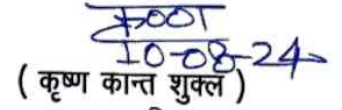 कृष्ण
10-08-24
( कृष्ण कान्त शुक्ल )